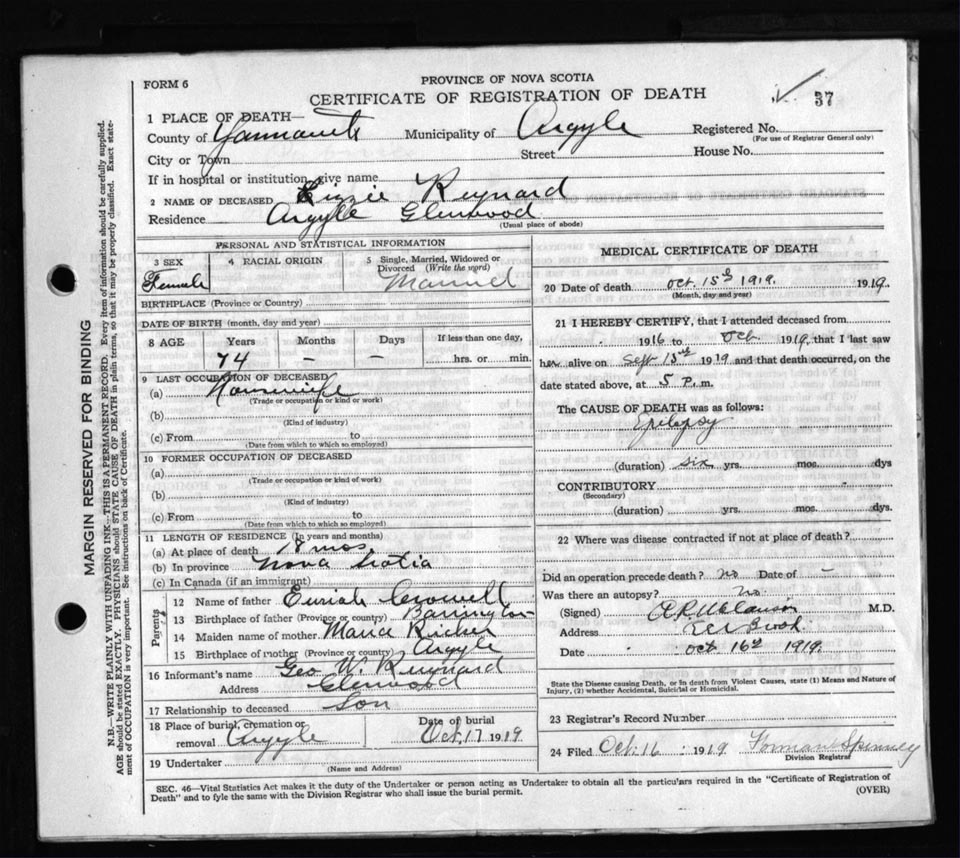 FORM 6
PROVINCE OF NOVA SCOTIA
CERTIFICATE OF REGISTRATION OF DEATH
37
1 PLACE OF DEATH—
County of Yarmouth Municipality of Argyle Registered No.
(For use of Registrar General only)
City or Town Street House No.
If in hospital or institution, give name
2 NAME OF DECEASED Lizzie Reynard
Residence Argyle Glenwood
(Usual place of abode)
PERSONAL AND STATISTICAL INFORMATION
3 SEX
Female
4 RACIAL ORIGIN
5 Single, Married, Widowed or
Divorced (Write the word)
Married
BIRTHPLACE (Province or Country)
DATE OF BIRTH (month, day and year)
8 AGE Years Months Days If less than one day,
74 – – hrs. or min.
9 LAST OCCUPATION OF DECEASED
(a) Housewife
(Trade or occupation or kind or work)
(b)
(Kind of industry)
(c) From to
(Date from which to which so employed)
10 FORMER OCCUPATION OF DECEASED
(a)
(Trade or occupation or kind of work)
(b)
(Kind of industry)
(c) From to
(Date from which to which so employed)
11 LENGTH OF RESIDENCE (In years and months)
(a) At place of death 18 mos.
(b) In province Nova Scotia
(c) In Canada (if an immigrant)
Parents
12 Name of father Euriah Crowell
13 Birthplace of father (Province or country) Barrington
14 Maiden name of mother
15 Birthplace of mother (Province or country) Argyle
16 Informant's name Geo W. Reynard
Address Glenwood
17 Relationship to deceased Son
18 Place of burial, cremation or
removal Argyle
Date of burial
Oct. 17 1919
19 Undertaker
(Name and Address)
MEDICAL CERTIFICATE OF DEATH
20 Date of death Oct. 15th 1919. 1919.
(Month, day and year)
21 I HEREBY CERTIFY, that I attended deceased from
1916 to Oct 1919, that I last saw
her alive on Sept 15th 1919 and that death occurred, on the
date stated above, at 5 P.m.
The CAUSE OF DEATH was as follows:
Epilepsy
(duration) six yrs. mos. dys
CONTRIBUTORY
(Secondary)
(duration) yrs. mos. dys.
22 Where was disease contracted if not at place of death?
Did an operation precede death? no Date of –
Was there an autopsy? no.
(Signed) M.D.
Address Eel Brook
Date Oct 16th 1919.
State the Disease causing Death, or in death from Violent Causes, state (1) Means and Nature of
Injury, (2) whether Accidental, Suicidal or Homicidal.
23 Registrar's Record Number
24 Filed Oct. 16 1919 Forman Spinney
Division Registrar
SEC. 46—Vital Statistics Act makes it the duty of the Undertaker or person acting as Undertaker to obtain all the particulars required in the "Certificate of Registration of
Death" and to fyle the same with the Division Registrar who shall issue the burial permit.
(OVER)
MARGIN RESERVED FOR BINDING
N.B.—WRITE PLAINLY WITH UNFADING INK—THIS IS A PERMANENT RECORD. Every item of information should be carefully supplied.
AGE should be stated EXACTLY. PHYSICIANS should STATE CAUSE OF DEATH in plain terms, so that it may be properly classified. Exact state-
ment of OCCUPATION is very important. See instructions on back of Certificate.